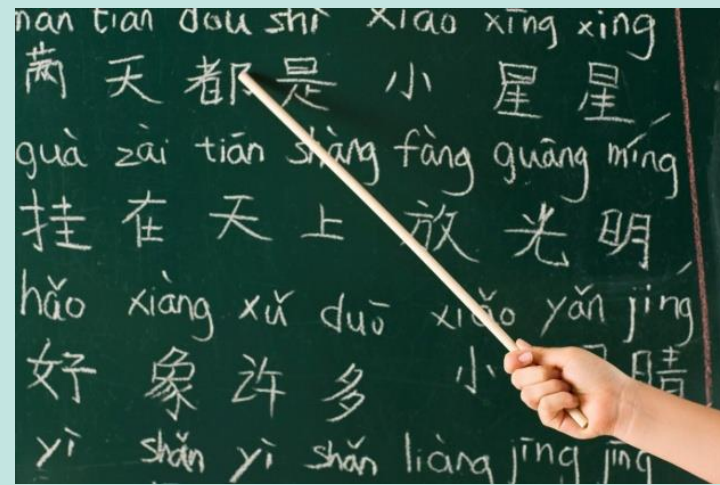 man tian dou shì xiǎo xīng xing
满天都是小星星
guà zài tiān shàng fàng guāng míng
挂在天上放光明
hǎo xiàng xǔ duō xiǎo yǎn jing
好象许多小 睛
yì shǎn yì shǎn liàng jīng jīng